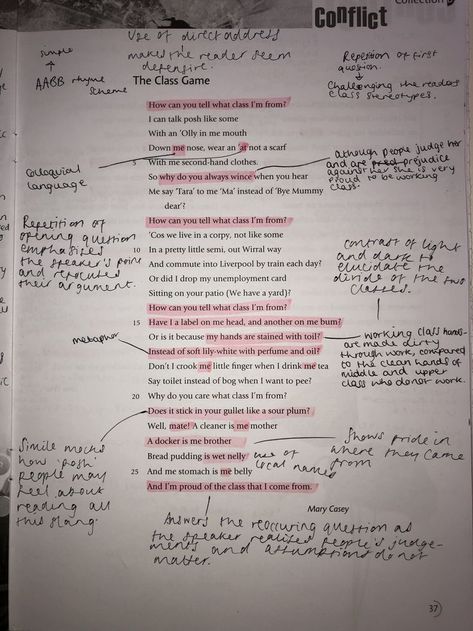 Collection
Conflict
Use of direct address
makes the reader seem
defensive.
simple
AABB rhyme
scheme
Repetition of first
question.
Challenging the readers
class stereotypes.
The Class Game
How can you tell what class I'm from?
I can talk posh like some
With an 'Olly in me mouth
Down me nose, wear an 'at not a scarf
5 With me second-hand clothes.
So why do you always wince when you hear
Me say 'Tara' to me 'Ma' instead of 'Bye Mummy
dear'?
How can you tell what class I'm from?
'Cos we live in a corpy, not like some
10 In a pretty little semi, out Wirral way
And commute into Liverpool by train each day?
Or did I drop my unemployment card
Sitting on your patio (We have a yard)?
How can you tell what class I'm from?
15 Have I a label on me head, and another on me bum?
Or is it because my hands are stained with toil?
Instead of soft lily-white with perfume and oil?
Don't I crook me little finger when I drink me tea
Say toilet instead of bog when I want to pee?
20 Why do you care what class I'm from?
Does it stick in your gullet like a sour plum?
Well, mate! A cleaner is me mother
A docker is me brother
Bread pudding is wet nelly
25 And me stomach is me belly
And I'm proud of the class that I come from.
Mary Casey
colloquial
language
although people judge her
and are prejudice
against her she is very
proud to be working
class.
Repetition of
opening question
emphasizes
the speaker's point
and
their argument.
contrast of light
and dark to
elucidate the
divide of the two
classes.
metaphor
working class hands
are made dirty
through work, compared
to the clean hands of
middle and upper
class who do not work.
Simile mocks
how 'posh'
people may
feel about
reading all
this slang.
use of
local names
Shows pride in
where they came
from
Answers the reoccuring question as
the speaker realises people's judge-
ments and assumptions do not
matter.
37